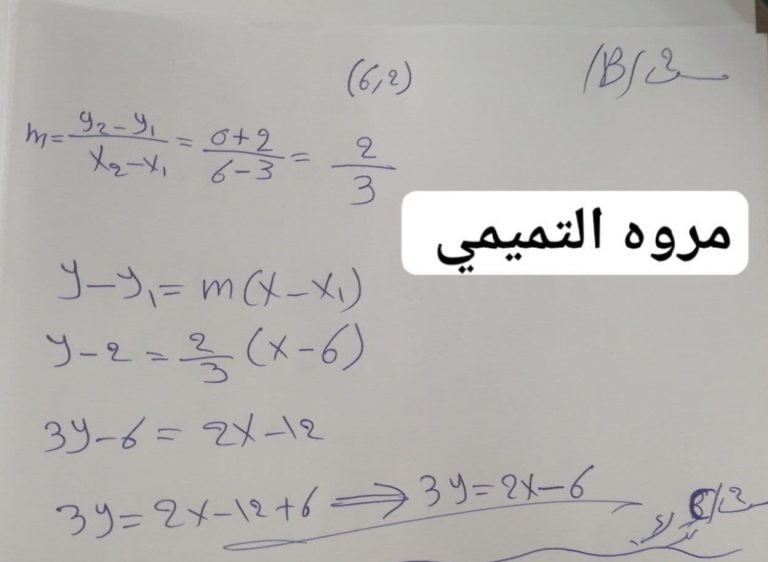 (6,2)
س/B/
m = \frac{y_2 - y_1}{x_2 - x_1} = \frac{0+2}{6-3} = \frac{2}{3}
مروه التميمي
y - y_1 = m(x - x_1)
y - 2 = \frac{2}{3} (x - 6)
3y - 6 = 2x - 12
3y = 2x - 12 + 6 ⟹ 3y = 2x - 6